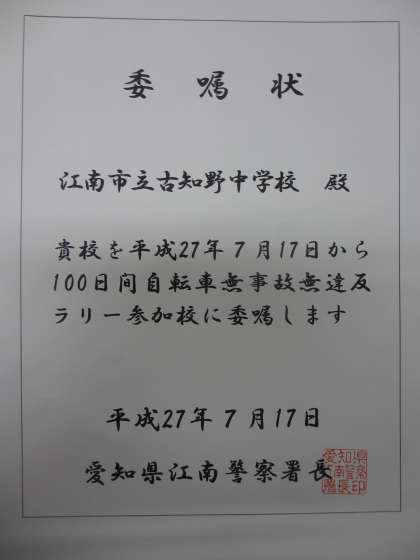 委嘱状
江南市立古知野中学校　殿
貴校を平成27年7月17日から
100日間自転車無事故無違反
ラリー参加校に委嘱します
平成27年7月17日
愛知県江南警察署長